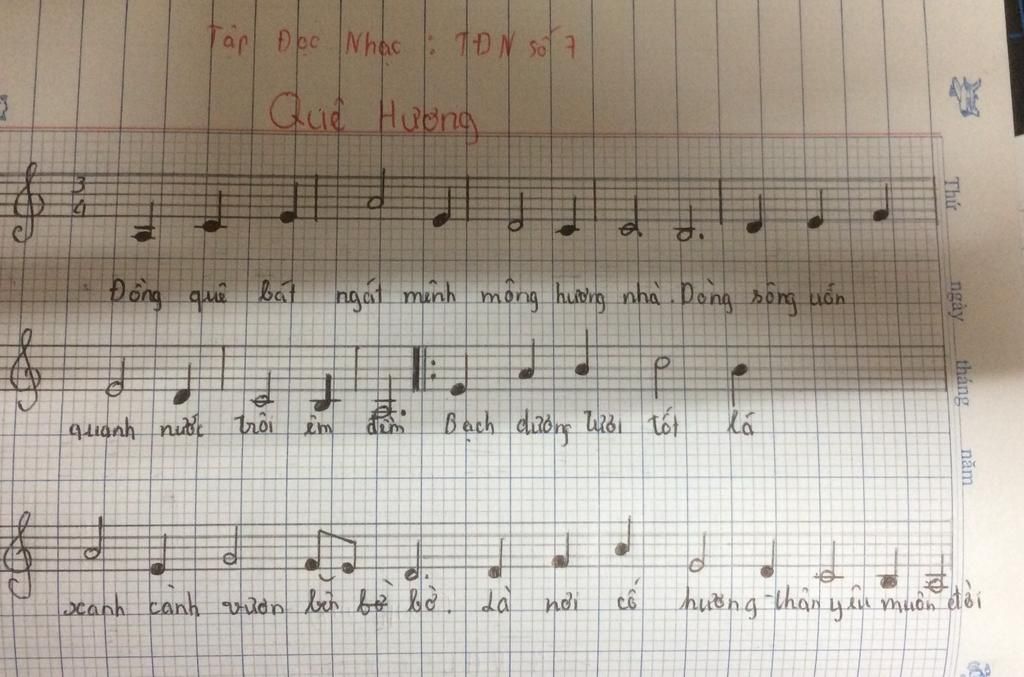 Tập Đọc Nhạc : TĐN số 7
Quê Hương
3
4
Đồng quê bát ngát mênh mông hương nhà. Dòng sông uốn
quanh nước trôi êm đềm Bạch dương tươi tốt lá
xanh cành vươn bên bờ bờ. Là nơi cố hương thân yêu muôn đời
Thứ ngày tháng năm